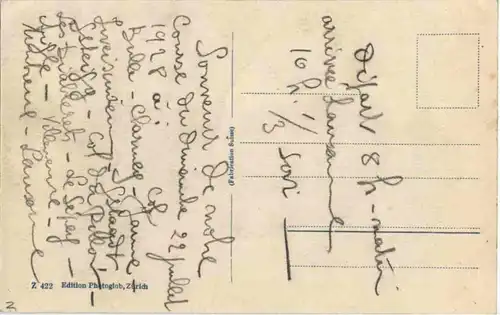 Souvenir de notre
Course du dimanche 22 juillet
1928 à
Bulle - Charmey - Jaun -
Zweisimmen - Gstaad
Gsteig - Col du Pillon -
Les Diablerets - Le Sépey -
Aigle - Villeneuve -
- Lausanne
Départ 8 h - matin
arrivée Lausanne
10 h. 1/3 soir
(Fabrication Suisse)
Z 422 Edition Photoglob, Zürich
2